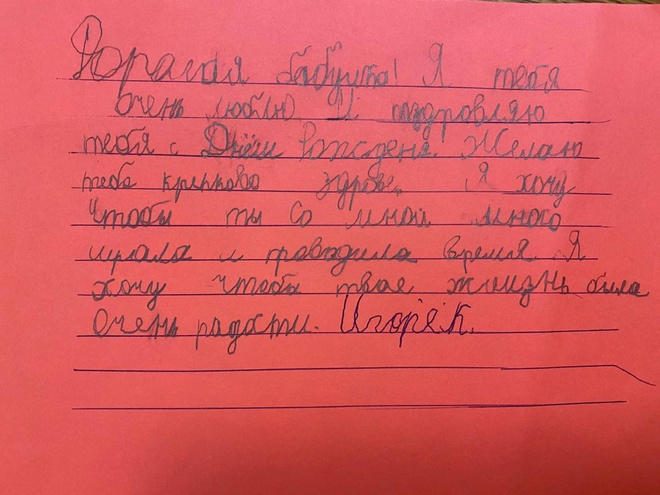 Дорагая бабушка! Я тебя
очень люблю И поздровляю
тебя с Днём Рожденя. Желаю
тебе крепково здрове. Я хочу
чтобы ты со мной много
играла и праводила время Я
хочу чтобы твае жизнь была
очень радасти. Игорёк.